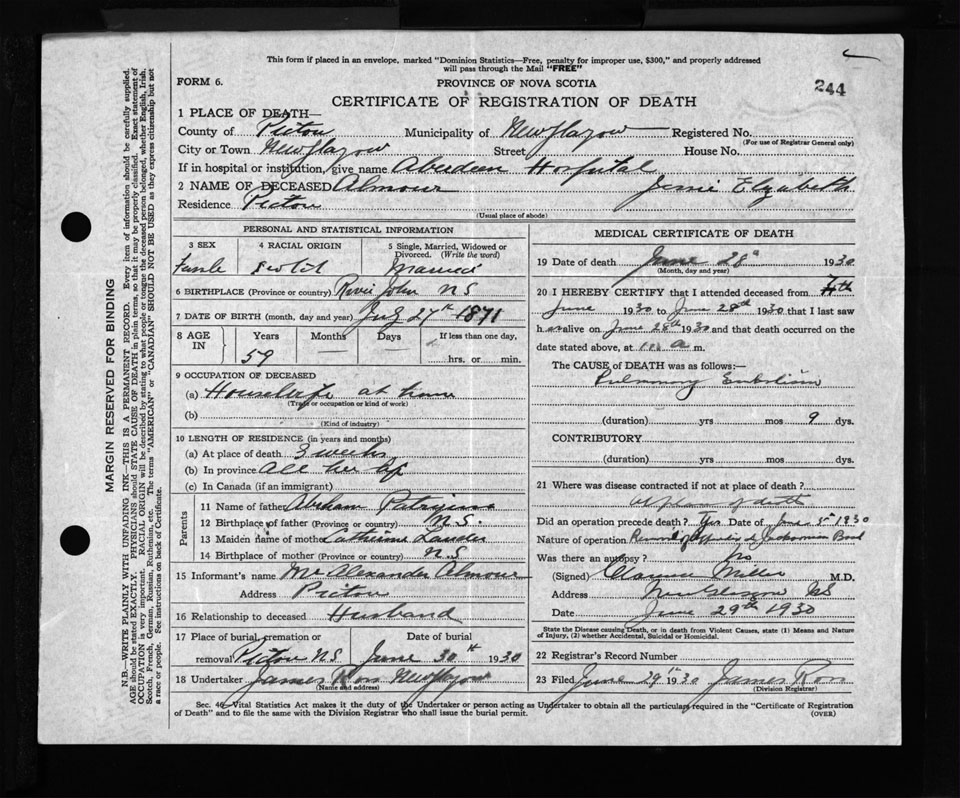 This form if placed in an envelope, marked "Dominion Statistics—Free, penalty for improper use, $300," and properly addressed
will pass through the Mail "FREE"
FORM 6.
PROVINCE OF NOVA SCOTIA
244
CERTIFICATE OF REGISTRATION OF DEATH
1 PLACE OF DEATH—
County of Pictou Municipality of New Glasgow Registered No.
(For use of Registrar General only)
City or Town New Glasgow Street House No.
If in hospital or institution, give name Aberdeen Hospital
2 NAME OF DECEASED Almour Jessie Elizabeth
Residence Pictou
(Usual place of abode)
PERSONAL AND STATISTICAL INFORMATION
3 SEX 4 RACIAL ORIGIN 5 Single, Married, Widowed or
Divorced. (Write the word)
Female Scotch Married
6 BIRTHPLACE (Province or country) River John NS
7 DATE OF BIRTH (month, day and year) 27th 1871
8 AGE IN Years Months Days If less than one day,
59 — — hrs. or min.
9 OCCUPATION OF DECEASED
(a) Housewife at home
(Trade or occupation or kind of work)
(b)
(Kind of industry)
10 LENGTH OF RESIDENCE (in years and months)
(a) At place of death 3 weeks
(b) In province All her life
(c) In Canada (if an immigrant)
Parents
11 Name of father Abraham
12 Birthplace of father (Province or country) N.S.
13 Maiden name of mother Catherine
14 Birthplace of mother (Province or country) N.S
15 Informant's name Mr Alexander Almour
Address Pictou
16 Relationship to deceased Husband
17 Place of burial, cremation or Date of burial
removal Pictou NS June 30th 1930
18 Undertaker James Ross New Glasgow
(Name and address)
MEDICAL CERTIFICATE OF DEATH
19 Date of death June 28th 1930
(Month, day and year)
20 I HEREBY CERTIFY that I attended deceased from 4th
June 1930 to June 28th 1930 that I last saw
h er alive on June 28th 1930 and that death occurred on the
date stated above, at a m.
The CAUSE of DEATH was as follows:—
Pulmonary Embolism
(duration) yrs mos 9 dys.
CONTRIBUTORY
(duration) yrs mos dys.
21 Where was disease contracted if not at place of death?
at place of death
Did an operation precede death? Yes Date of June 5th 1930
Nature of operation Removal of Appendix & Jacksonian Band
Was there an autopsy? No
(Signed) Clarence Miller M.D.
Address New Glasgow NS
Date June 29th 1930
State the Disease causing Death, or in death from Violent Causes, state (1) Means and Nature
of Injury, (2) whether Accidental, Suicidal or Homicidal.
22 Registrar's Record Number
23 Filed June 29th 1930 James Ross
(Division Registrar)
Sec. 46, Vital Statistics Act makes it the duty of the Undertaker or person acting as Undertaker to obtain all the particulars required in the "Certificate of Registration
of Death" and to file the same with the Division Registrar who shall issue the burial permit. (OVER)
MARGIN RESERVED FOR BINDING
N.B.—WRITE PLAINLY WITH UNFADING INK—THIS IS A PERMANENT RECORD. Every item of information should be carefully supplied.
AGE should be stated EXACTLY. PHYSICIANS should STATE CAUSE OF DEATH in plain terms, so that it may be properly classified. Exact statement of
OCCUPATION is very important. RACIAL ORIGIN will be described by stating to what people or tongue the deceased person belonged, whether English, Irish,
Scotch, French, German, Russian, Ruthenian, etc. The terms "AMERICAN" or "CANADIAN" SHOULD NOT BE USED as they express citizenship but not
a race or people. Fee instructions on back of Certificate.